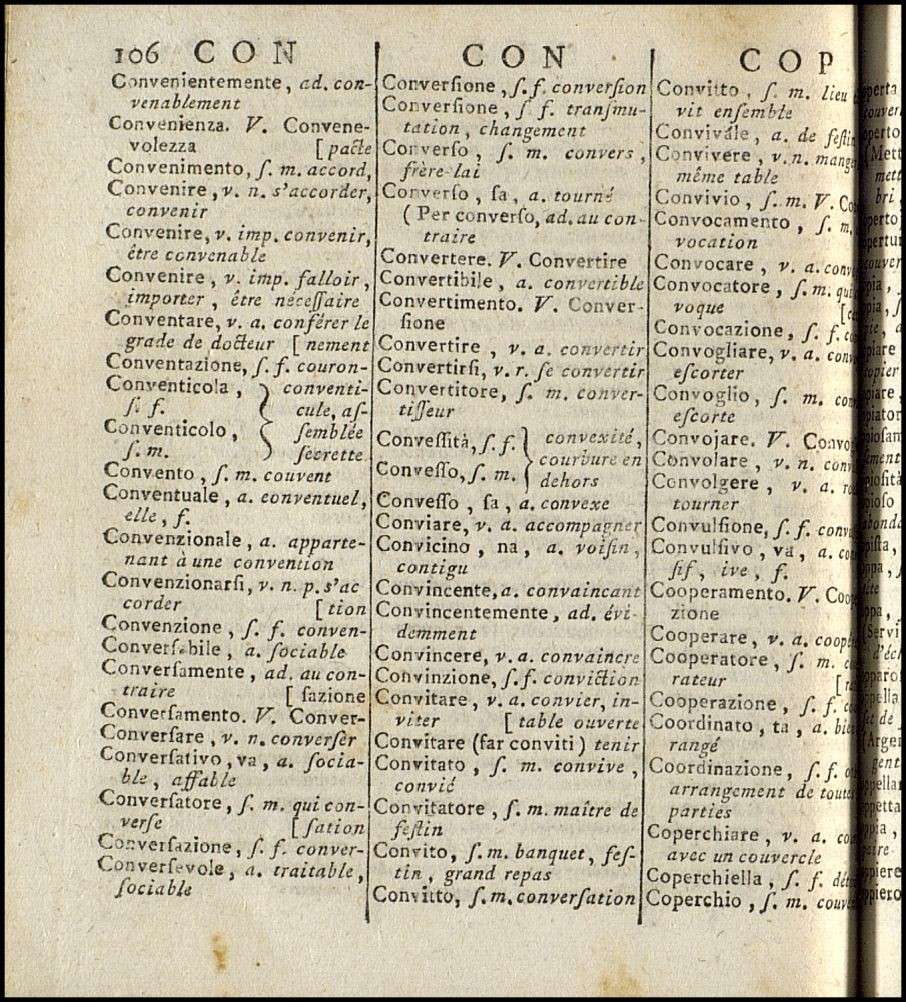 106 CON
Convenientemente, ad. con-
venablement
Convenienza. V. Convene-
volezza [pacte
Convenimento, ſ. m. accord,
Convenire, v. n. s'accorder,
convenir
Convenire, v. imp. convenir,
être convenable
Convenire, v. imp. falloir,
importer, être néceſſaire
Conventare, v. a. conférer le
grade de docteur [nement
Conventazione, ſ. f. couron-
Conventicola, } conventi-
ſ. f. cule, aſ-
Conventicolo, ſemblée
ſ. m. ſecrette
Convento, ſ. m. couvent
Conventuale, a. conventuel,
elle, f.
Convenzionale, a. apparte-
nant à une convention
Convenzionarſi, v. n. p. s'ac
corder [tion
Convenzione, ſ. f. conven-
Converſabile, a. ſociable
Converſamente, ad. au con-
traire [ſazione
Converſamento. V. Conver-
Converſare, v. n. converſer
Converſativo, va, a. ſocia-
ble, affable
Converſatore, ſ. m. qui con-
verſe [ſation
Converſazione, ſ. f. conver-
Converſevole, a. traitable,
ſociable
CON
Converſione, ſ. f. converſion
Converſione, ſ. f. tranſmu-
tation, changement
Converſo, ſ. m. convers,
frère-lai
Converſo, ſa, a. tourné
(Per converſo, ad. au con-
traire
Convertere. V. Convertire
Convertibile, a. convertible
Convertimento. V. Conver-
ſione
Convertire, v. a. convertir
Convertirſi, v. r. ſe convertir
Convertitore, ſ. m. conver-
tiſſeur
Conveſſità, ſ. f. } convexité,
courbure en
Conveſſo, ſ. m. dehors
Conveſſo, ſa, a. convexe
Conviare, v. a. accompagner
Convicino, na, a. voiſin,
contigu
Convincente, a. convaincant
Convincentemente, ad. évi-
demment
Convincere, v. a. convaincre
Convinzione, ſ. f. conviction
Convitare, v. a. convier, in-
viter [table ouverte
Convitare (far conviti) tenir
Convitato, ſ. m. convive,
convié
Convitatore, ſ. m. maître de
feſtin
Convito, ſ. m. banquet, feſ-
tin, grand repas
Convitto, ſ. m. converſation
COP
Convitto, ſ. m. lieu
vit enſemble
Convivále, a. de feſtin
Convivere, v. n. mang
même table
Convivio, ſ. m. V. Co
Convocamento, ſ. m.
vocation
Convocare, v. a. conv
Convocatore, ſ. m. qui
voque
Convocazione, ſ. f. co
Convogliare, v. a. conv
eſcorter
Convoglio, ſ. m. con
eſcorte
Convojare. V. Convog
Convolare, v. n. conv
Convolgere, v. a.
tourner
Convulſione, ſ. f. conv
Convulſivo, va, a. co
ſif, ive, f.
Cooperamento. V. Coop
zione
Cooperare, v. a. coopé
Cooperatore, ſ. m. c
rateur
Cooperazione, ſ. f. co
Coordinato, ta, a. bie
rangé
Coordinazione, ſ. f.
arrangement de toute
parties
Coperchiare, v. a. co
avec un couvercle
Coperchiella, ſ. f.
Coperchio, ſ. m. couv